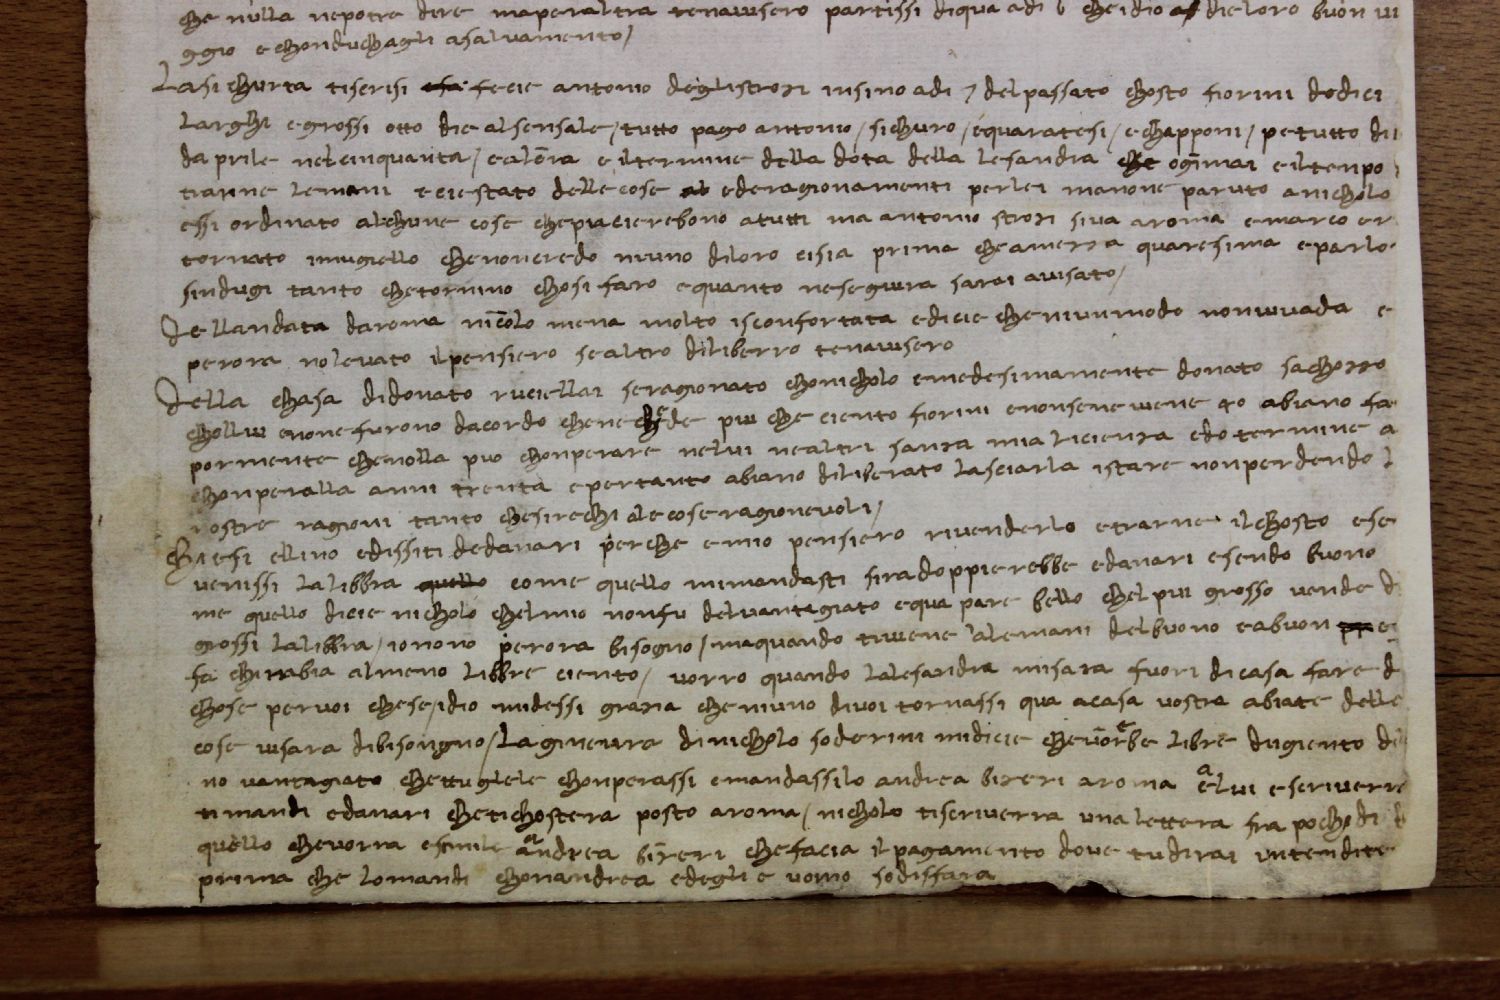 che nulla nepotre dire maperaltra tenavisero partissi diqua adi 6 cheidio dieloro buon vi
ggio echonduchagli asalvamento/
Lasichurta tiscrisi fecie antonio deglistrozi insinoadi 7 delpassato chosto fiorini dodici
larghi egrossi otto die alsensale/tutto pago antonio/sichuro/equaratesi/echapponi/petutto di
daprile nelcinquanta/ealōra eiltermine della dota della lesandra che ogimai eiltenpo
trarne lemani ecciestato dellecose ederagionamenti perlei manone paruto anicholo
essi ordinato alchune cose chepiacierebono atutti ma antonio strozi siva aroma emarco er
tornato inmugiello chenonvredo niuno diloro cisia prima cheamezza quaresima eparlo
sindugi tanto chetornino chosi faro equanto neseguira sarai avisato/
Dellandata daroma nicolo mena molto isconfortata edicie cheniunmodo nonvivada e
perora nolevato ilpensiero sealtro diliberro tenavisero
Della chasa didonato ruciellai seragionato chonicholo emedesimamente donato sachozzo
chollui enonefurono dacordo chene chede piu che ciento fiorini enonsenewiene 40 abiano fa
pormente chenolla puo chonperare nelui nealtri sanza mia licienza edotermine a
chonperalla anni trenta epertanto abiano diliberato lasciarla istare nonperdendo l
nostre ragioni tanto chesirechi alecoseragionevoli/
Chiesi ellino edissiti dedanari perche emio pensiero rivenderlo etrarne ilchosto ese
venissi lalibbra quello come quello mimandasti siradoppierebbe edanari esendo buono
me quello dicie nicholo chelmio nonfu delvantagiato equa pare bello chelpiu grosso vende d
grossi lalibbra/ionono perora bisogno/maquando tivene alemani delbuono eabuon
fa chinabia almeno libbre ciento/vorro quando lalesandra misara fuori dicasa fare d
chose pervoi chese/idio midessi grazia cheniuno divoi tornassi qua acasa vostra abiate delle
cose visara dibisongno/Laginevra dinicholo soderini midicie chevorebe libre dugiento del
no vantagiato chettuglele chonperassi emandassilo andrea bizeri aroma alui escriverre
timandi edanari chetichostera posto aroma/nicholo tiscriverra unalettera fra pochidi
quello chevorra esimile andrea bizeri chefacia ilpagamento dove tudirai intendite
prima che lomandi chonandrea edegli e uomo sodisfara